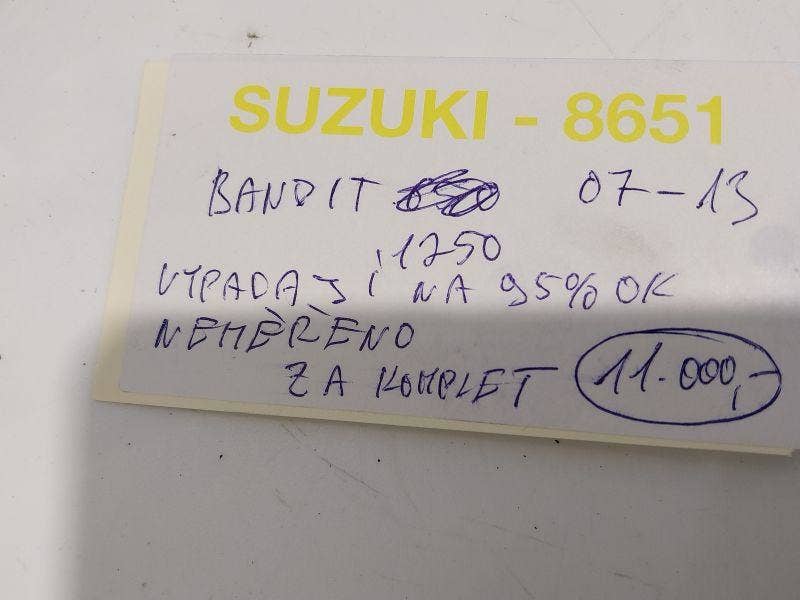 SUZUKI - 8651
BANDIT 07-13
1250
VYPADAJÍ NA 95% OK
NEMĚŘENO
ZA KOMPLET 11.000,-